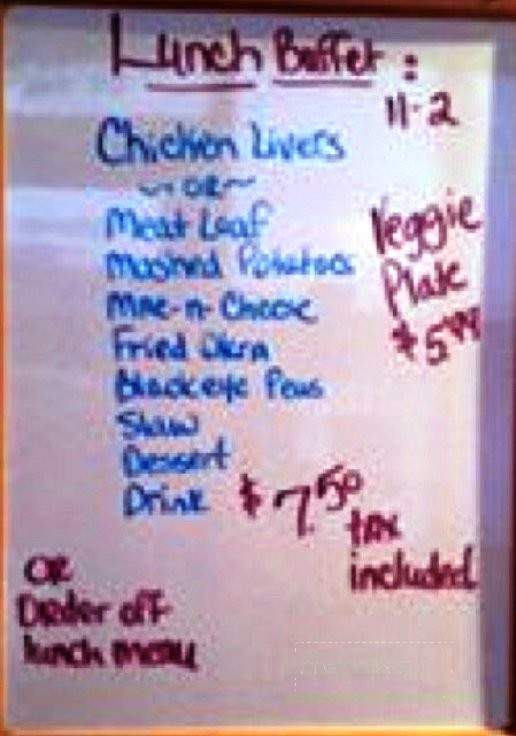 Lunch Buffet:
11-2
Chicken Livers
~OR~
Meat Loaf
Mashed Potatoes
Mac-n-Cheese
Fried Okra
Blackeye Peas
Slaw
Dessert
Drink $7.50
tax
included
Veggie
Plate
$5.99
OR
Order off
lunch menu